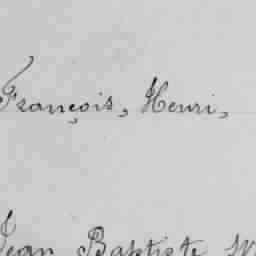 François, Henri,
Jean Baptiste